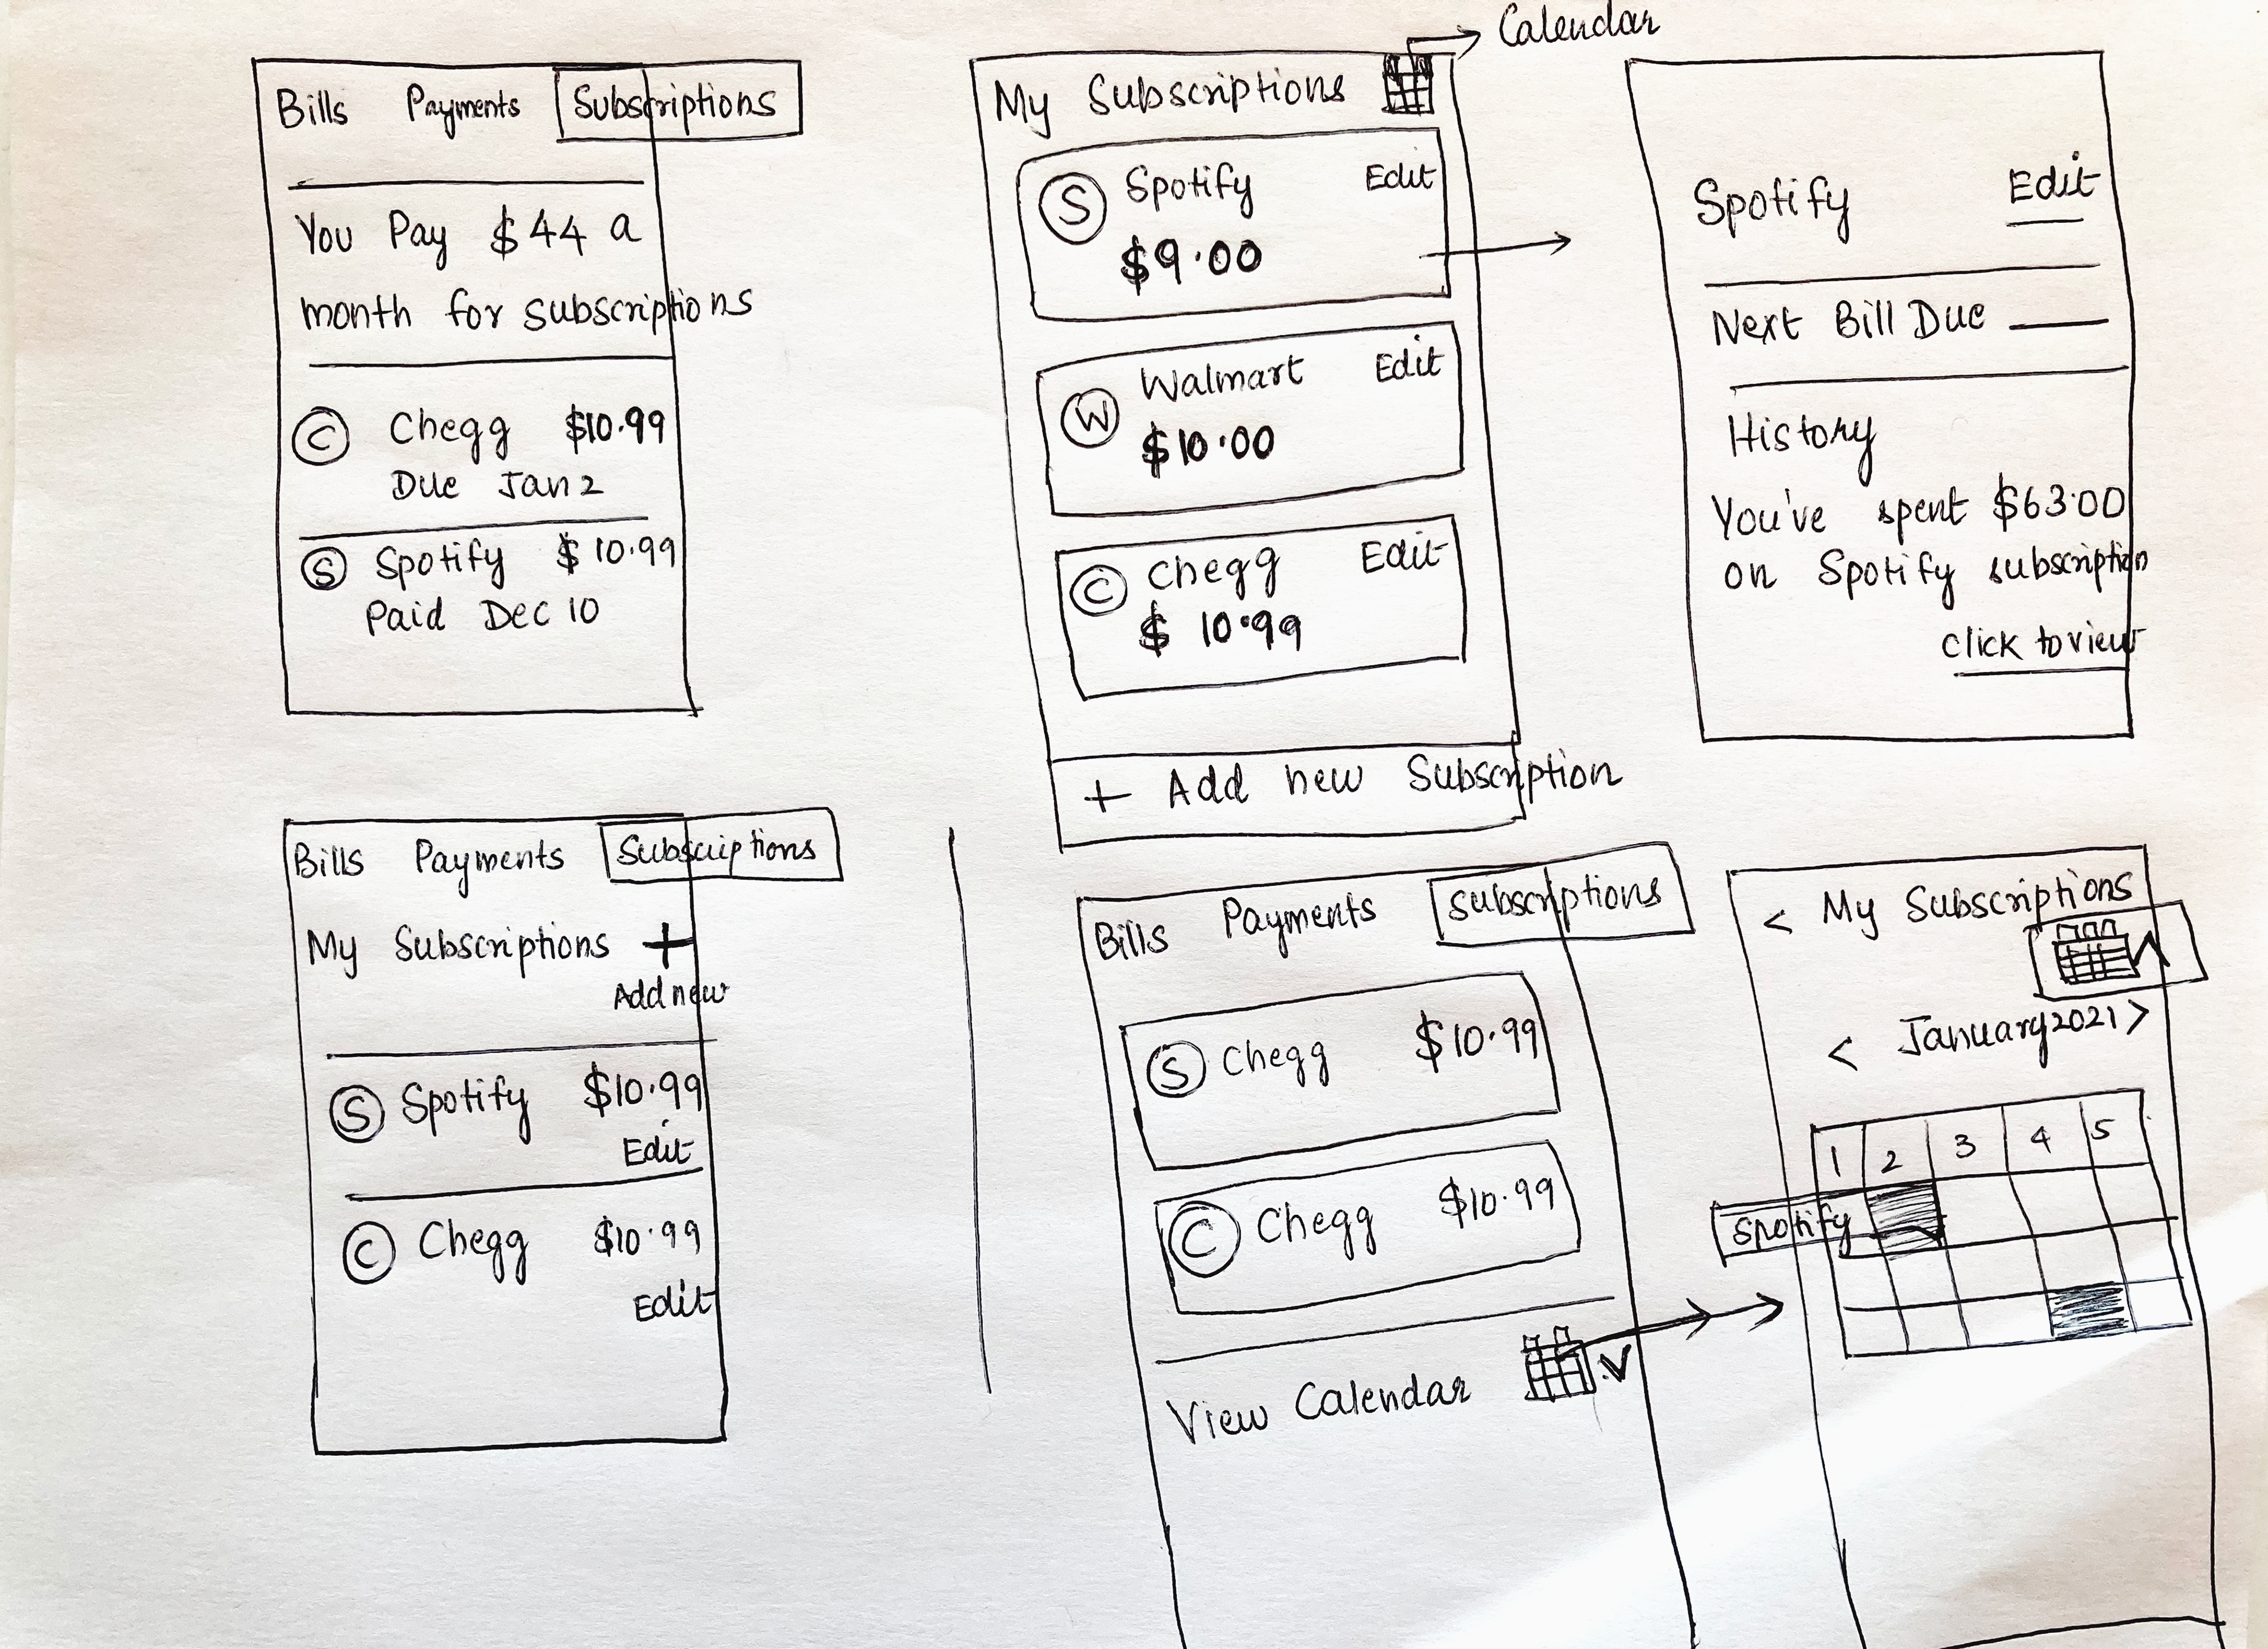 Bills Payments Subscriptions
You Pay $44 a
month for subscriptions
C Chegg $10.99
Due Jan 2
S Spotify $10.99
Paid Dec 10
Calendar
My Subscriptions
S Spotify Edit
$9.00
W Walmart Edit
$10.00
C Chegg Edit
$10.99
+ Add new Subscription
Spotify Edit
Next Bill Due
History
You've spent $63.00
on Spotify subscription
click to view
Bills Payments Subscriptions
My Subscriptions +
Add new
S Spotify $10.99
Edit
C Chegg $10.99
Edit
Bills Payments Subscriptions
S Chegg $10.99
C Chegg $10.99
View Calendar
< My Subscriptions
< January 2021 >
1 2 3 4 5
Spotify